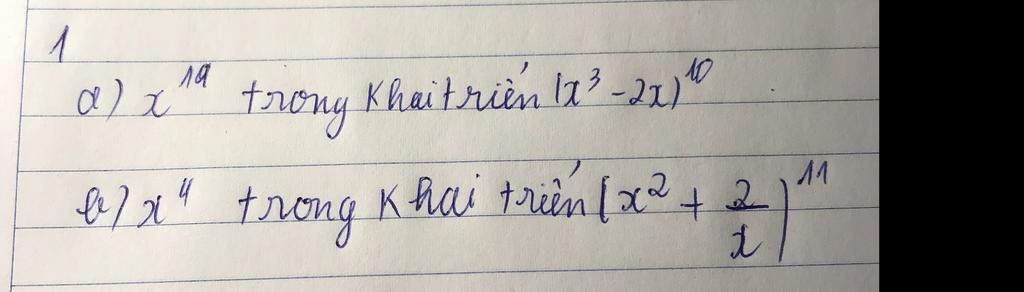 1
a) x^19 trong khai triển (x^3 - 2x)^10
b) x^4 trong khai triển (x^2 + 2/x)^11